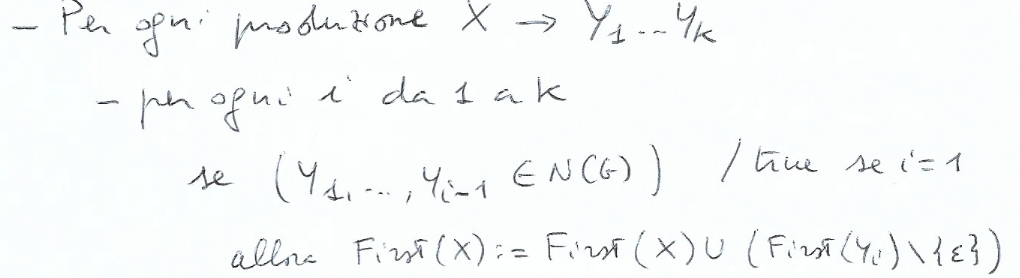 - Per ogni produzione X → Y1 -- Yk
- per ogni i da 1 a k
se (Y1, ..., Yi-1 ∈ N(G)) / true se i=1
allora First(X) := First(X) ∪ (First(Yi) \ {ε})